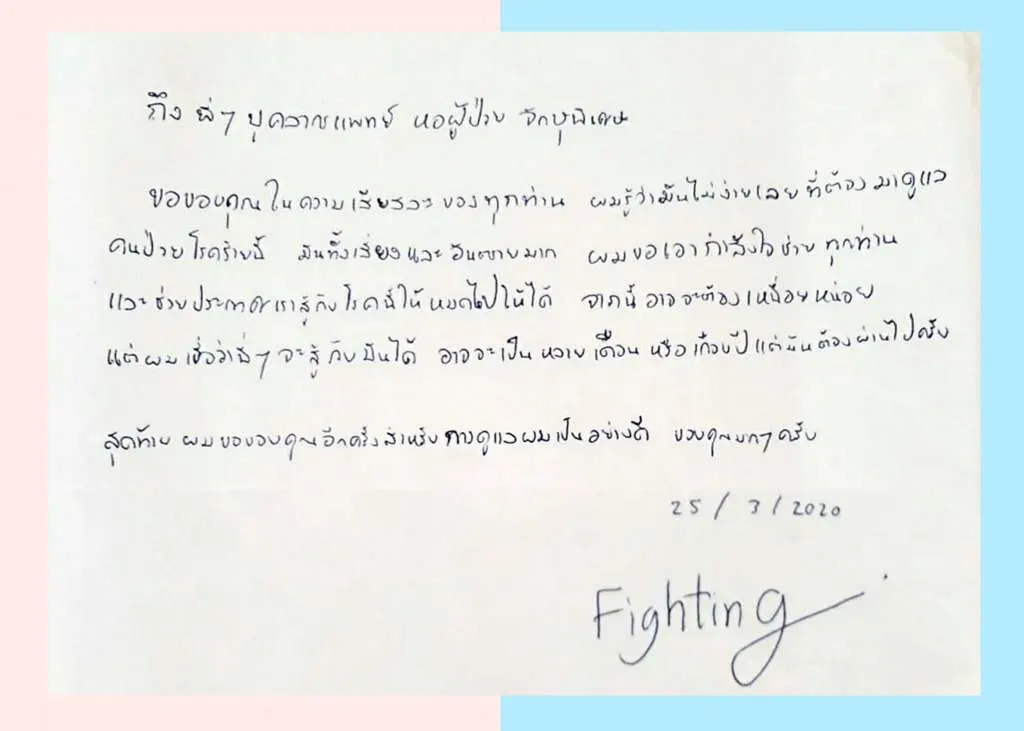 ถึง พี่ๆ บุคลากรแพทย์ หอผู้ป่วย จักษุพิเศษ
ขอขอบคุณในความเสียสละของทุกท่าน ผมรู้ว่ามันไม่ง่ายเลย ที่ต้องมาดูแล
คนป่วยโรคร้ายนี้ มันทั้งเสี่ยงและอันตรายมาก ผมขอเอากำลังใจช่วยทุกท่าน
และช่วยประเทศเราสู้กับโรคนี้ให้หมดไปให้ได้ จากนี้อาจจะต้องเหนื่อยหน่อย
แต่ผมเชื่อว่าพี่ๆ จะสู้กับมันได้ อาจจะเป็นหลายเดือน หรือเกือบปี แต่มันต้องผ่านไปครับ
สุดท้าย ผมขอขอบคุณอีกครั้งสำหรับการดูแลผมเป็นอย่างดี ขอบคุณมากๆครับ
25 / 3 / 2020
Fighting